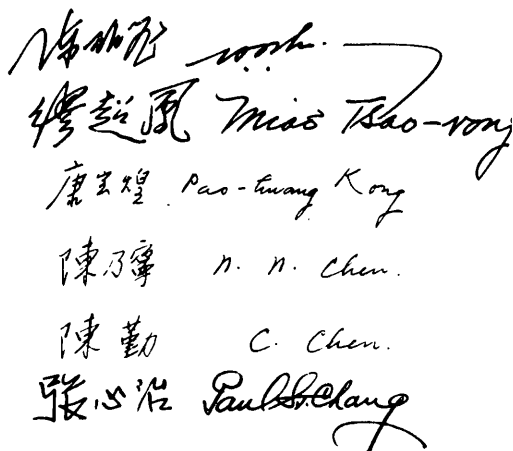 繆超鳳 Miao Tsao-vong
康寶煌 Pao-hwang Kong
陳乃寧 N. N. Chen.
陳勤 C. Chen.
張心治 Paul S. Chang